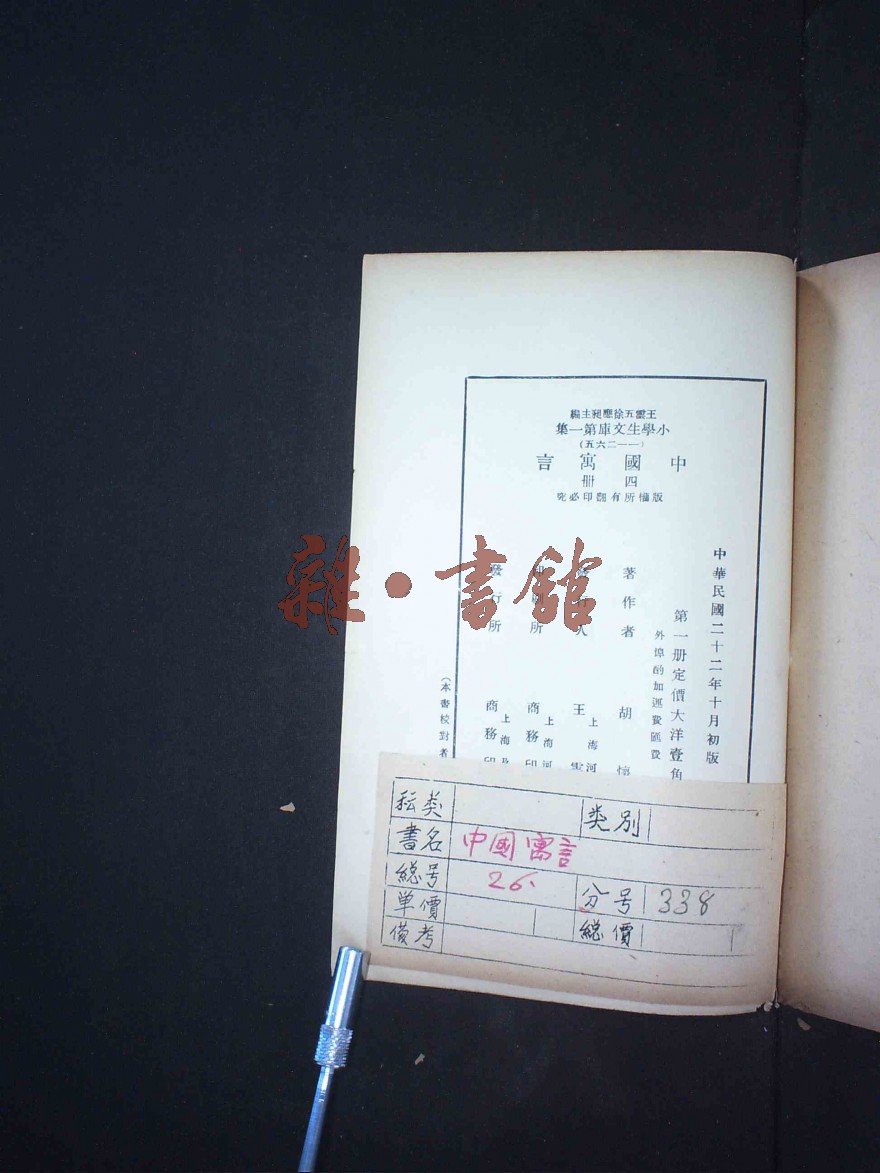 王雲五徐應昶主編
小學生文庫第一集
(一一二六五)
中國寓言
四册
版權所有翻印必究
中華民國二十二年十月初版
第一册定價大洋壹角
外埠酌加運費匯費
著作者 胡
發行人 王雲
上海河
印刷所 商務印
上海河
發行所 商務印
上海及
(本書校對者
雜·書館
类别
書名 中國寓言
総号 26. 分号 338
单價 総價
俻考